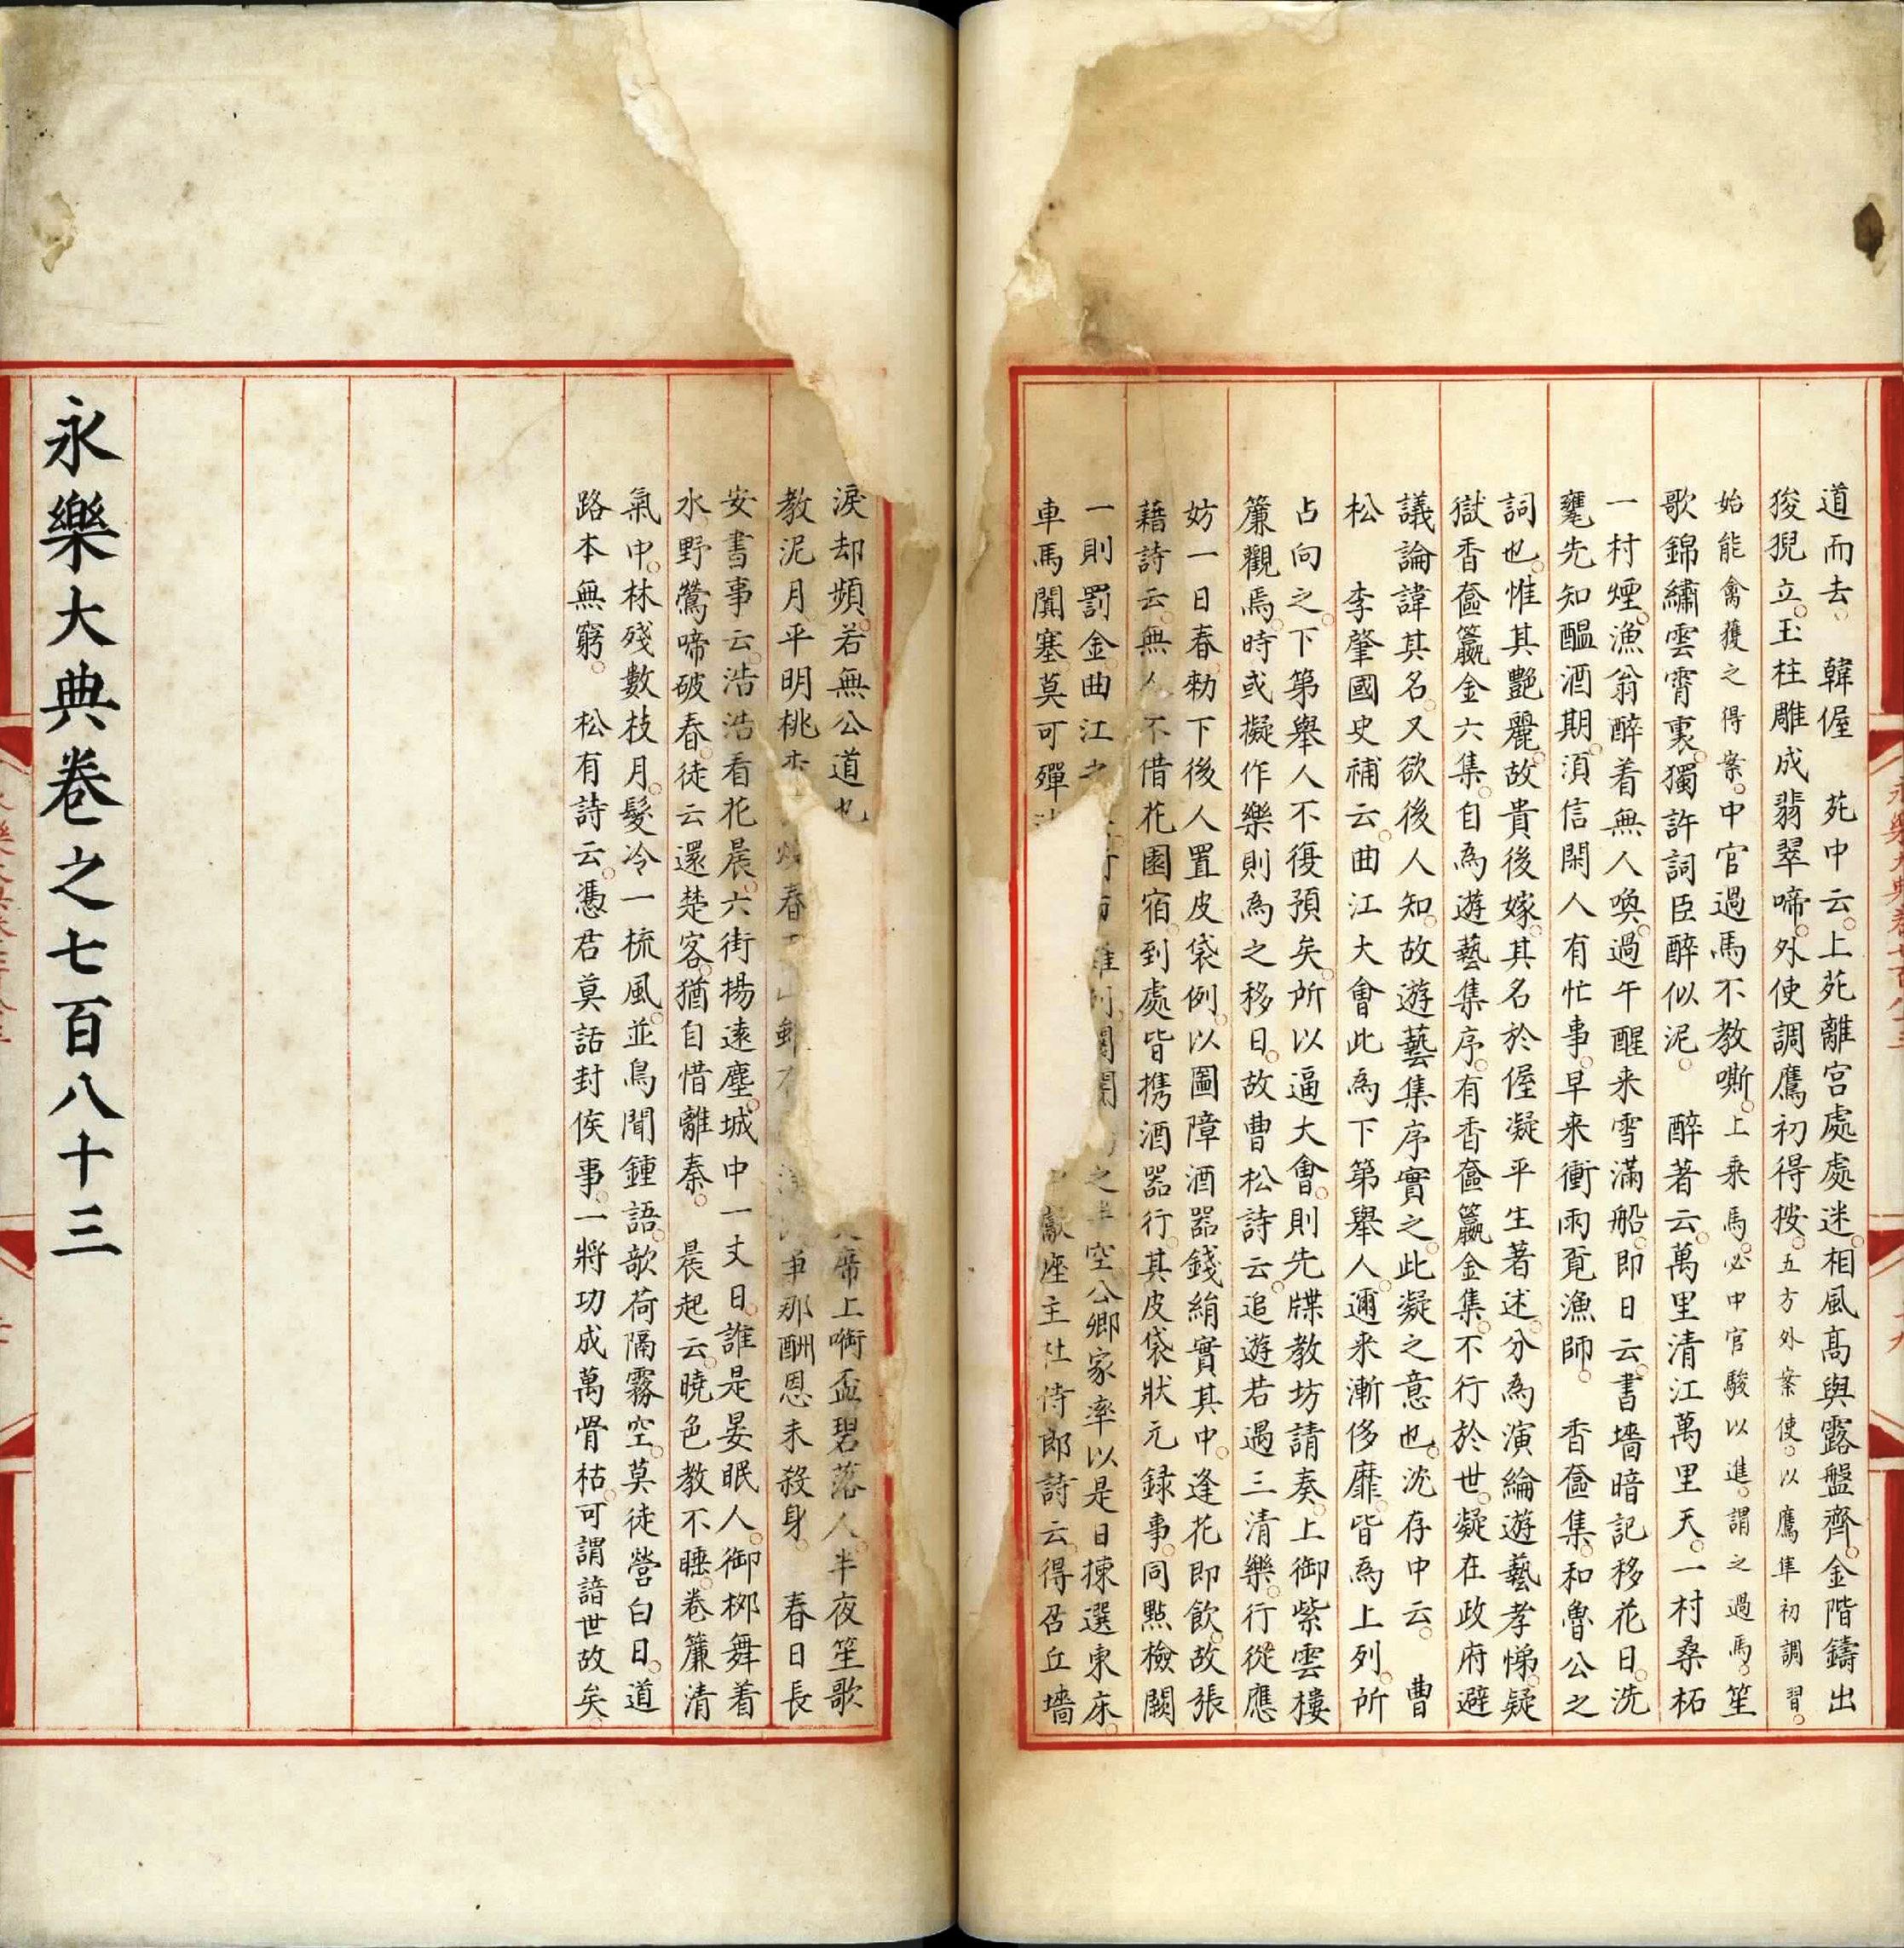 道而去 韓偓 苑中云上苑離宮處處迷相風髙與露盤齊金階鑄出
狻猊立玉柱雕成翡翠啼外使調鷹初得按五方外案使以鷹隼初調習
始能禽獲之得案中官過馬不教嘶上乗馬必中官馭以進謂之過馬笙
歌錦繡雲霄裏獨許詞臣醉似泥 醉著云萬里清江萬里天一村桑柘
一村煙漁翁醉着無人喚過午醒来雪滿船即日云書墻暗記移花日洗
甕先知醖酒期湏信閑人有忙事早来衝雨覔漁師 香奩集和魯公之
詞也惟其艷麗故貴後嫁其名於偓凝平生著述分為演綸遊藝孝悌疑
獄香奩籯金六集自為遊藝集序有香奩籯金集不行於世凝在政府避
議論諱其名又欲後人知故遊藝集序實之此凝之意也沈存中云 曹
松 李肇國史補云曲江大會此為下第舉人邇来漸侈靡皆為上列所
占向之下第舉人不復預矣所以逼大會則先牒教坊請奏上御紫雲樓
簾觀焉時或擬作樂則為之移日故曹松詩云追遊若遇三清樂行從應
妨一日春勑下後人置皮袋例以圖障酒器錢絹實其中逢花即飲故張
藉詩云無人不借花園宿到處皆携酒器行其皮袋狀元録事同點檢闕
一則罰金曲江之 空公卿家率以是日揀選東床
車馬闐塞莫可殫 獻座主杜侍郎詩云得召丘墻
淚却頻若無公道也 席上衘盃碧落人半夜笙歌
教泥月平明桃 春 那酬恩未殺身 春日長
安書事云浩浩看花晨六街楊遠塵城中一丈日誰是晏眠人御栁舞着
水野鶯啼破春徒云還楚客猶自惜離秦 晨起云曉色教不睡卷簾清
氣中林殘數枝月髮冷一梳風並鳥聞鍾語欹荷隔霧空莫徒營白日道
路本無窮 松有詩云憑君莫話封侯事一將功成萬骨枯可謂諳世故矣
永樂大典卷之七百八十三